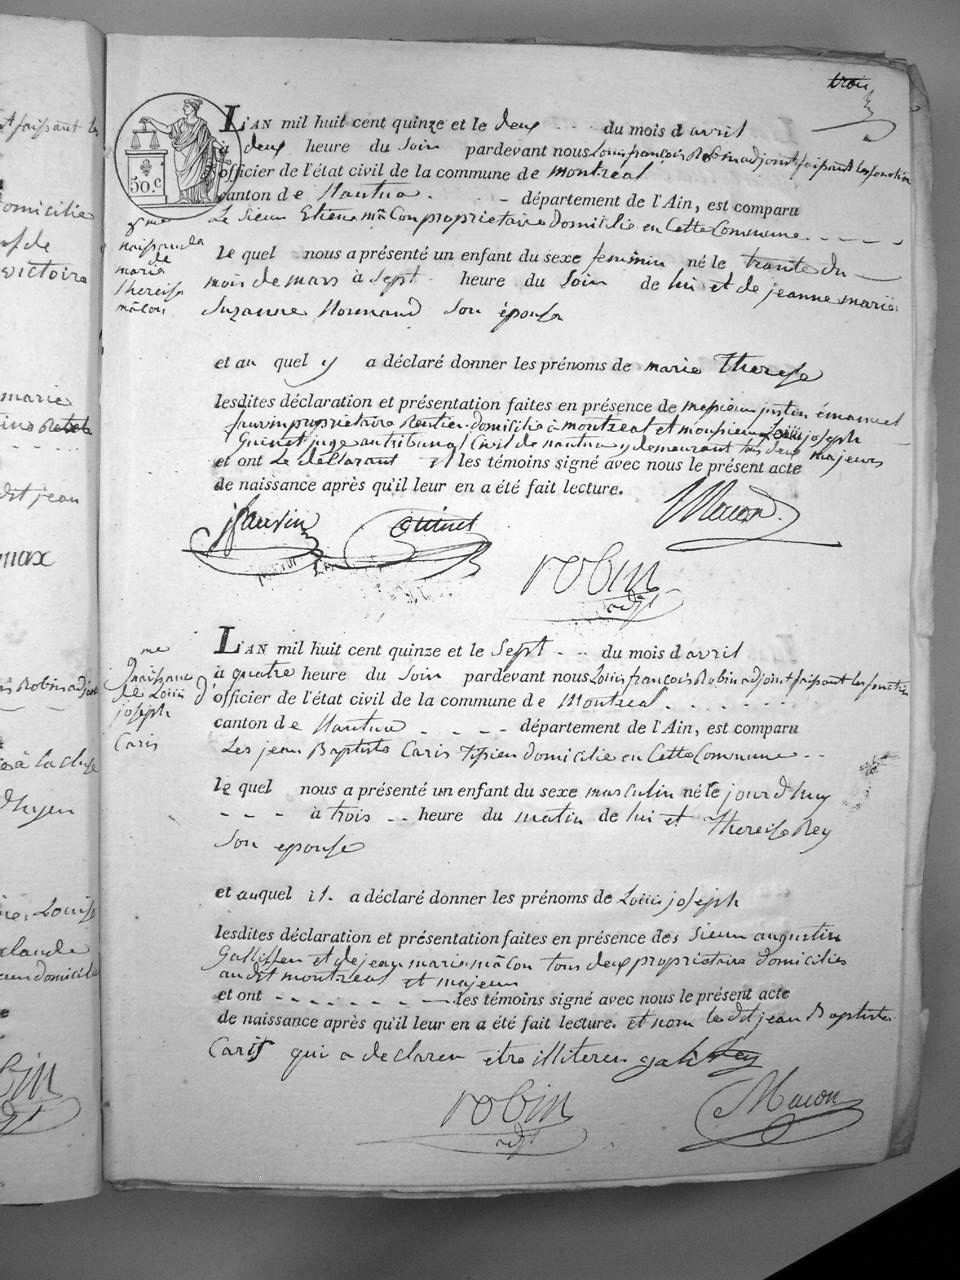 trois
50.c
L'AN mil huit cent quinze et le deux - - - du mois d avril
à deux heure du Soir pardevant nous Louis francois Robin adjoint faisant les fonction
officier de l'état civil de la commune de montreal
canton de Nantua - département de l'Ain, est comparu
Le Sieur Etiene mâcon proprietaire Domicilié en Cette Commune - - - -
8me
naissance
de
marie
therese
mâcon
le quel nous a présenté un enfant du sexe feminin né le trante du
mois de mars à Sept heure du Soir de lui et de jeanne marie
Suzanne Normand Son épouse
et au quel il a déclaré donner les prénoms de marie Therese
lesdites déclaration et présentation faites en présence de messieurs justin émanuel
proprietaire Rentier domicilié a montréal et monsieur Louis joseph
Guinet juge au tribunal Civil de nantua y demeurant tous deux majeurs
et ont Le déclarant et les témoins signé avec nous le présent acte
de naissance après qu'il leur en a été fait lecture.
Guinet
Macon
robin
adjt
L'AN mil huit cent quinze et le Sept - - du mois d avril
à quatre heure du Soir pardevant nous Louis francois Robin adjoint faisant les fonction
d'officier de l'état civil de la commune de Montréal - - - - - -
canton de Nantua - - - - département de l'Ain, est comparu
Les jean Baptiste Caris domicilié en Cette Commune - -
9me
naissance
de Louis
joseph
Caris
le quel nous a présenté un enfant du sexe masculin né le jour d'huy
- - - à trois - - heure du matin de lui et Therese Rey
Son epouse
et auquel il a déclaré donner les prénoms de Louis joseph
lesdites déclaration et présentation faites en présence des Sieur augustin
Gallissen et de jean marie mâcon tous deux proprietaire domiciliés
audit montréal et majeur
et ont - - - - - - - les témoins signé avec nous le présent acte
de naissance après qu'il leur en a été fait lecture. et non le dit jean Baptiste
Caris qui a declaren etre illiteren
robin
adjt
Macon